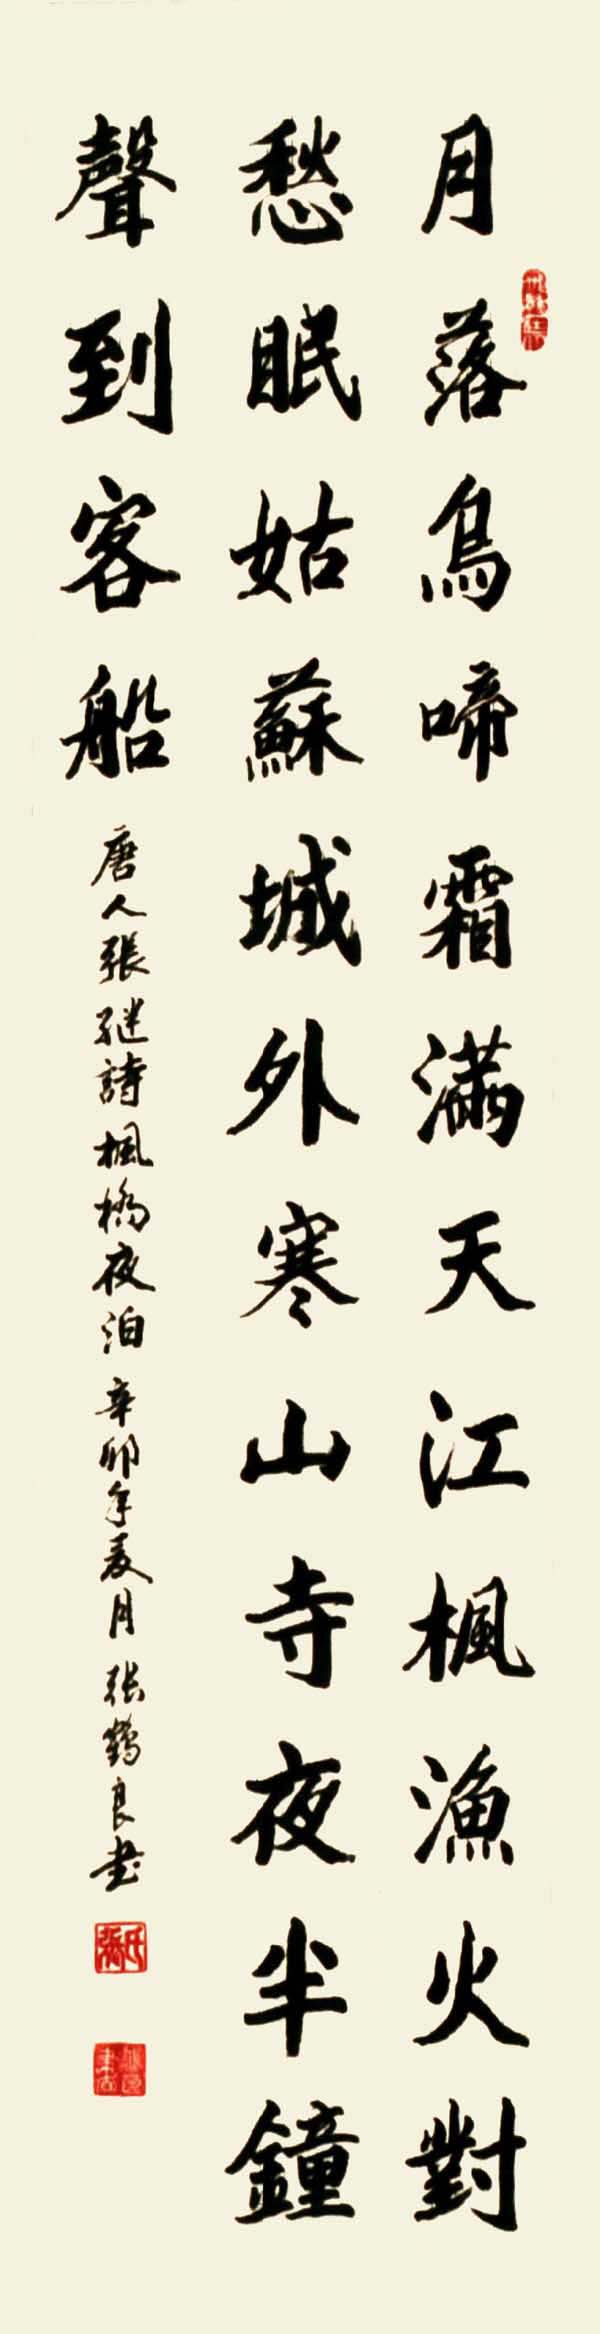 月落烏啼霜滿天江楓漁火對
愁眠姑蘇城外寒山寺夜半鐘
聲到客船
唐人張继詩楓橋夜泊辛卯年夏月張鶴良书